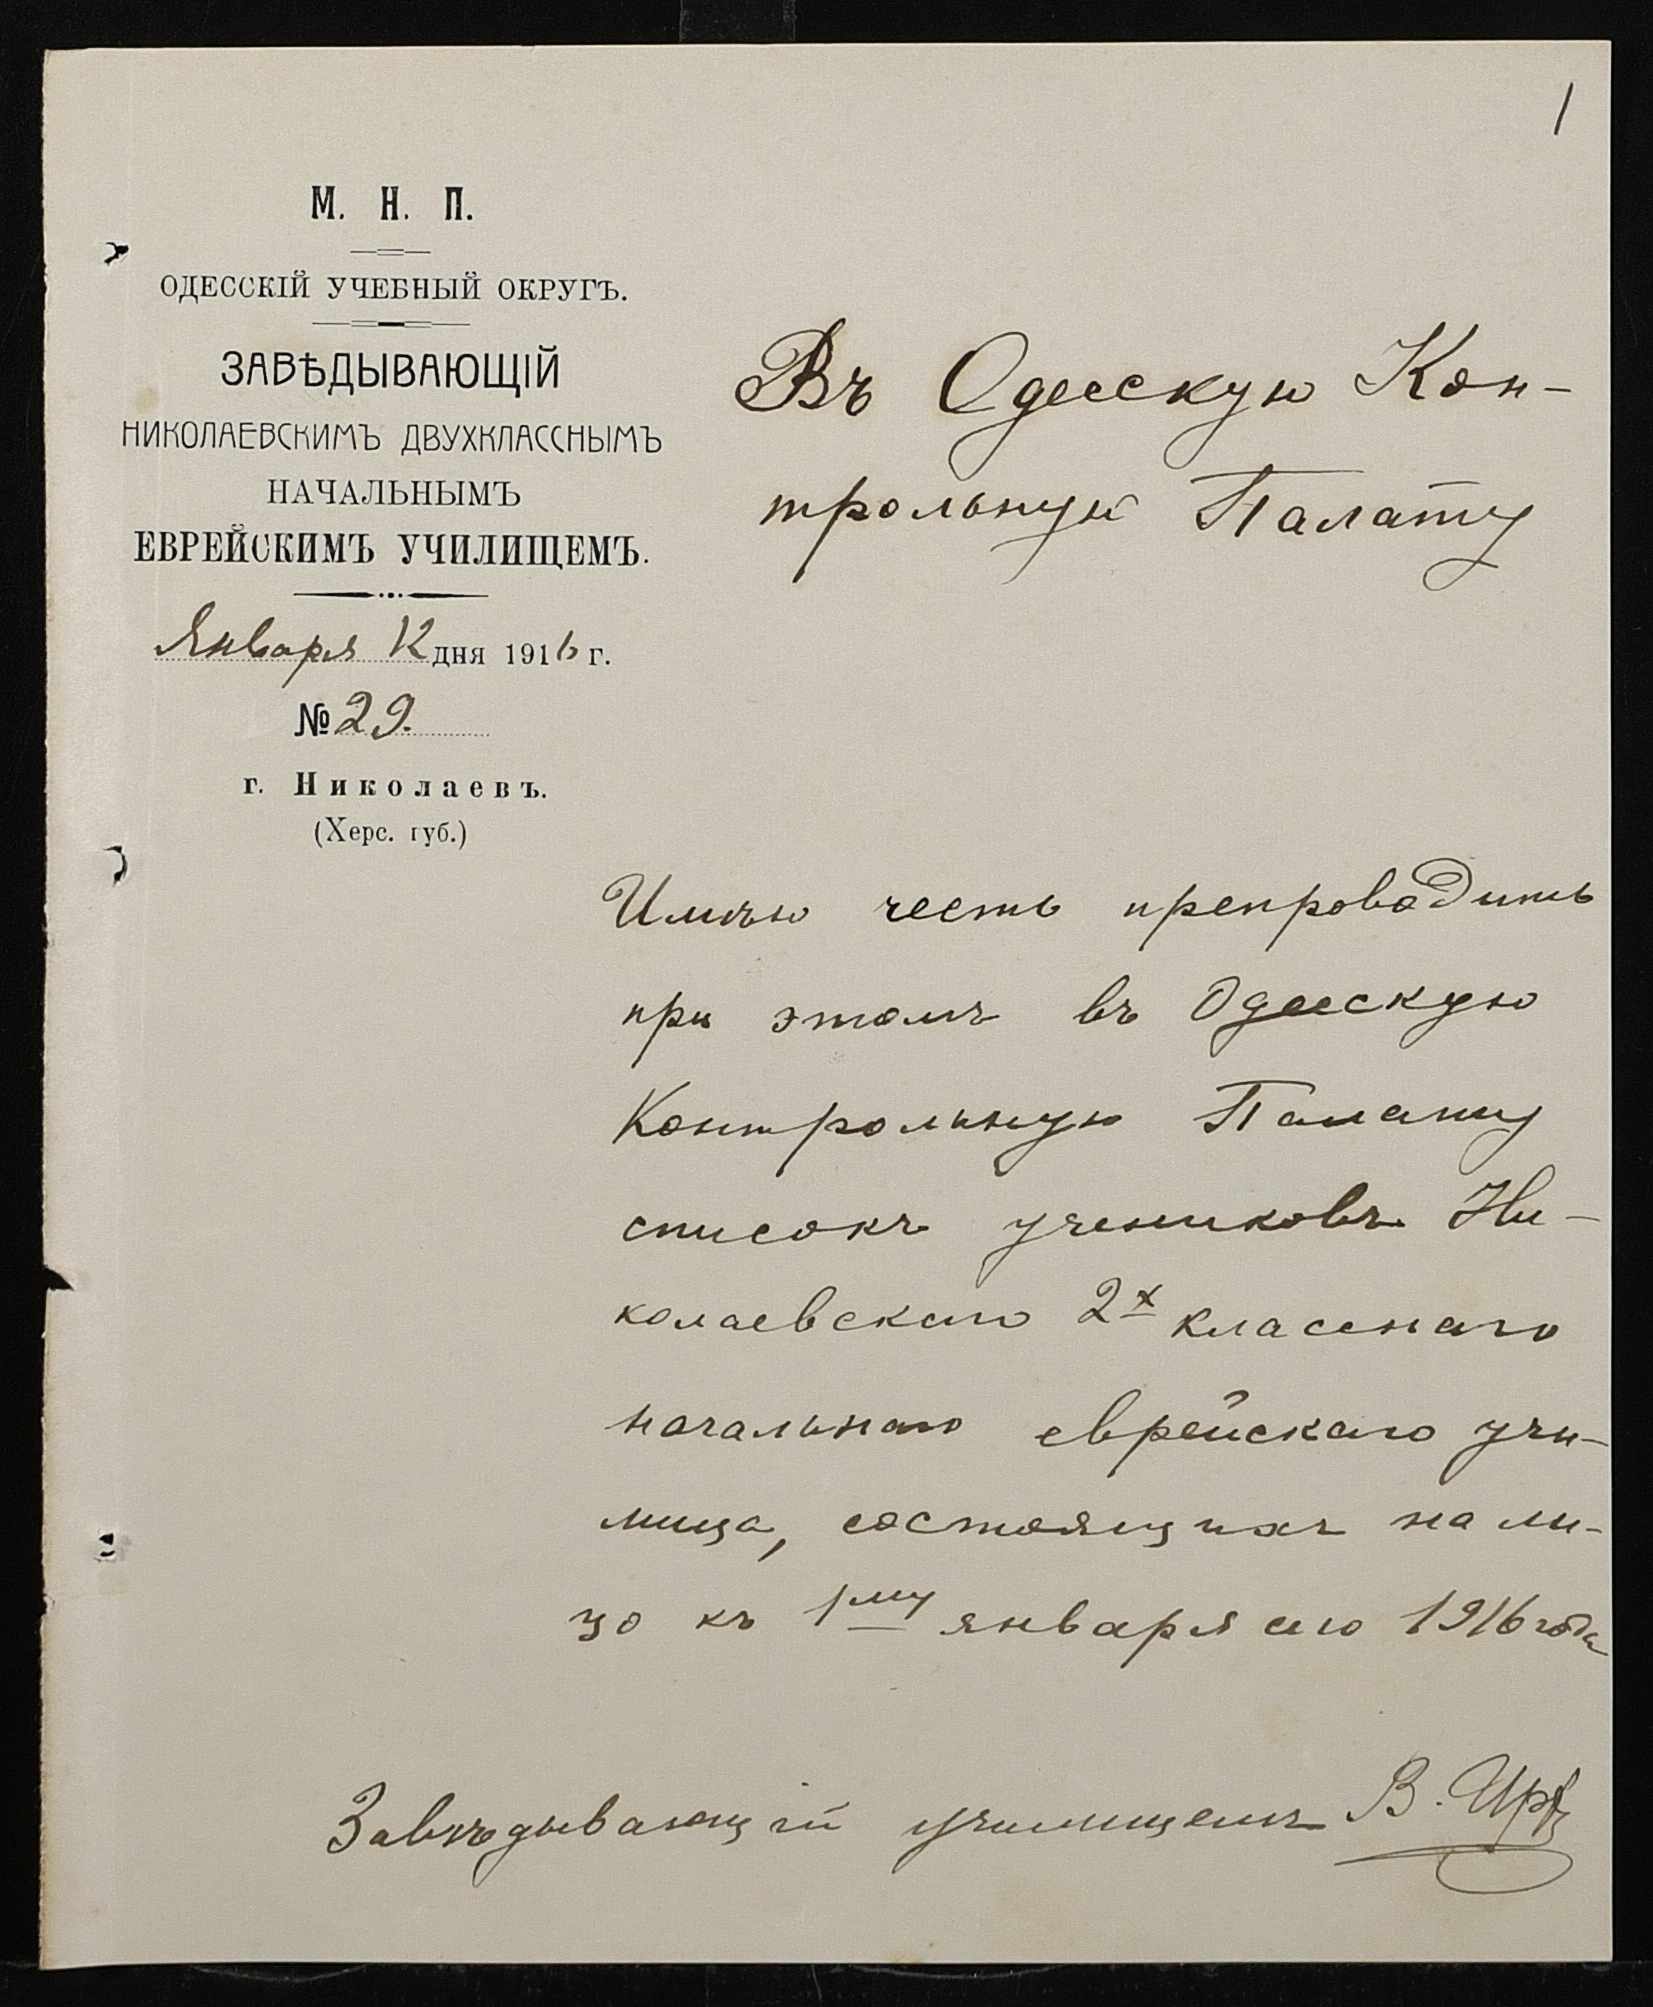 1
М. Н. П.
ОДЕССКІЙ УЧЕБНЫЙ ОКРУГЪ.
ЗАВѢДЫВАЮЩІЙ
НИКОЛАЕВСКИМЪ ДВУХКЛАССНЫМЪ
НАЧАЛЬНЫМЪ
ЕВРЕЙСКИМЪ УЧИЛИЩЕМЪ.
Января 12 дня 1916 г.
№ 29.
г. Николаевъ.
(Херс. губ.)
Въ Одесскую Кон-
трольную Палату
Имѣю честь препроводить
при этомъ въ Одесскую
Контрольную Палату
списокъ учениковъ Ни-
колаевскаго 2х класснаго
начальнаго еврейскаго учи-
лища, состоящихъ на ли-
цо къ 1му января сего 1916 года
Завѣдывающій училищемъ В.